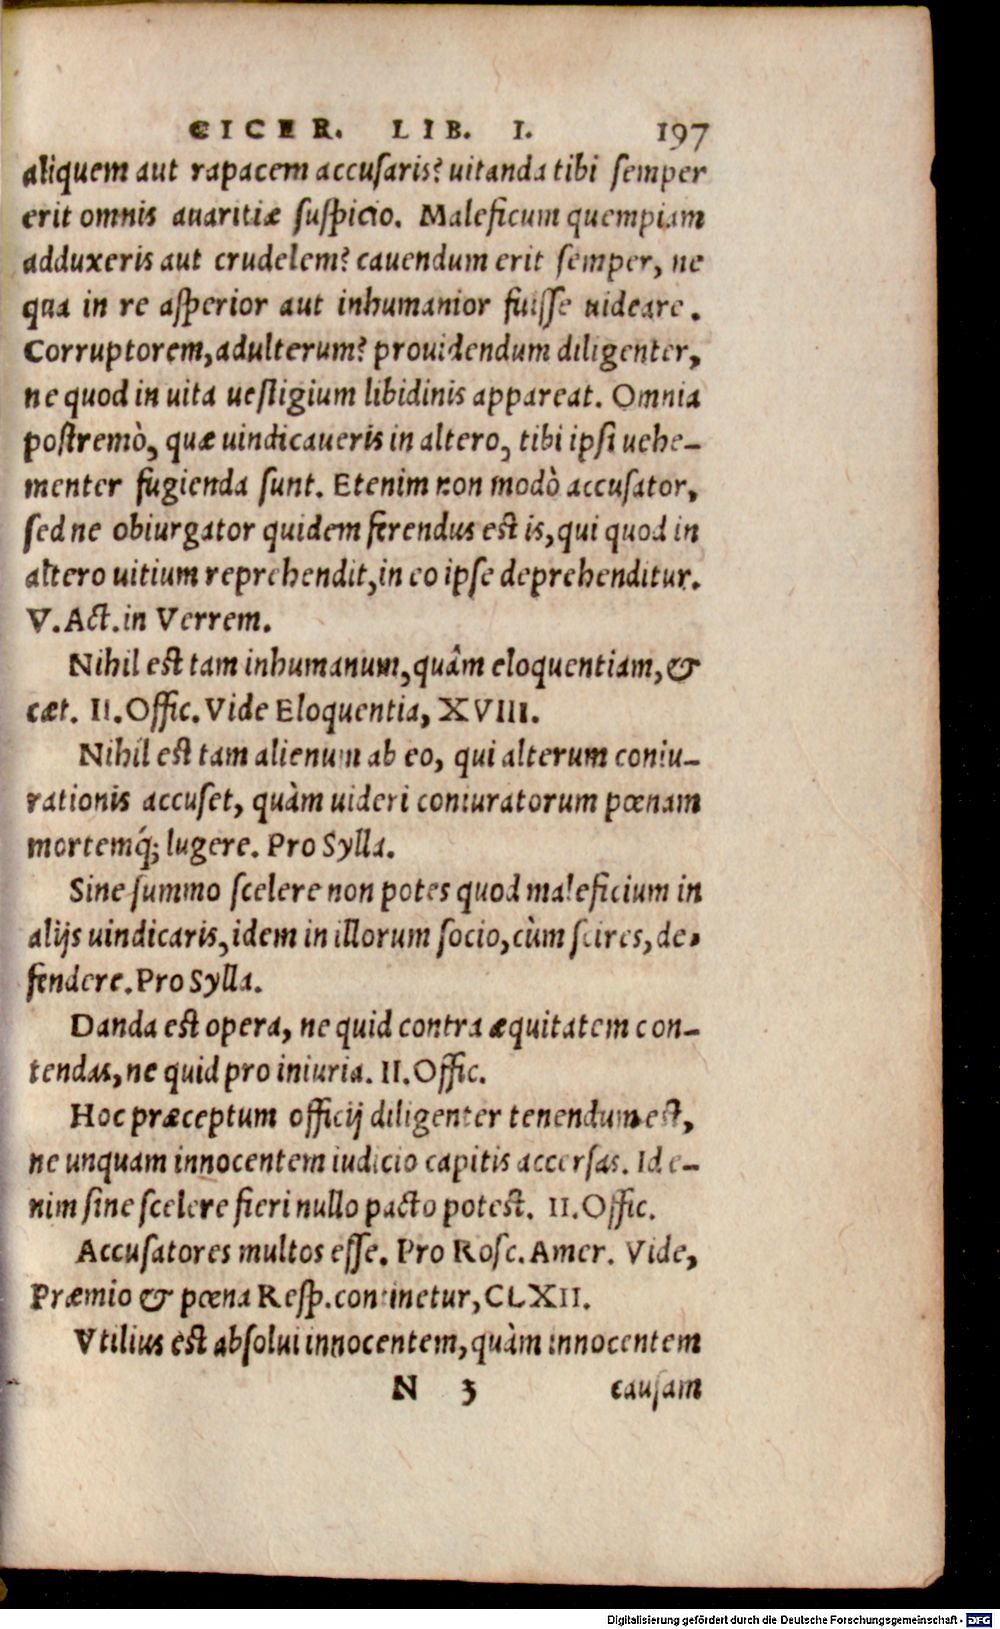 CICER. LIB. I. 197
aliquem aut rapacem accusaris? uitanda tibi semper
erit omnis auaritiæ suspicio. Maleficum quempiam
adduxeris aut crudelem? cauendum erit semper, ne
qua in re asperior aut inhumanior fuisse uideare.
Corruptorem, adulterum? prouidendum diligenter,
ne quod in uita uestigium libidinis appareat. Omnia
postremò, quæ uindicaueris in altero, tibi ipsi uehe-
menter fugienda sunt. Etenim non modò accusator,
sed ne obiurgator quidem ferendus est is, qui quod in
altero uitium reprehendit, in eo ipse deprehenditur.
V. Act. in Verrem.
Nihil est tam inhumanum, quâm eloquentiam, &
cæt. II. Offic. Vide Eloquentia, XVIII.
Nihil est tam alienum ab eo, qui alterum coniu-
rationis accuset, quàm uideri coniuratorum pœnam
mortemq́; lugere. Pro Sylla.
Sine summo scelere non potes quod maleficium in
alijs uindicaris, idem in illorum socio, cùm scires, de-
fendere. Pro Sylla.
Danda est opera, ne quid contra æquitatem con-
tendas, ne quid pro iniuria. II. Offic.
Hoc præceptum officij diligenter tenendum est,
ne unquam innocentem iudicio capitis accersas. Id e-
nim sine scelere fieri nullo pacto potest. II. Offic.
Accusatores multos esse. Pro Rosc. Amer. Vide,
Præmio & pœna Resp. continetur, CLXII.
Vtilius est absolui innocentem, quàm innocentem
N 3 causam
Digitalisierung gefördert durch die Deutsche Forschungsgemeinschaft - DFG